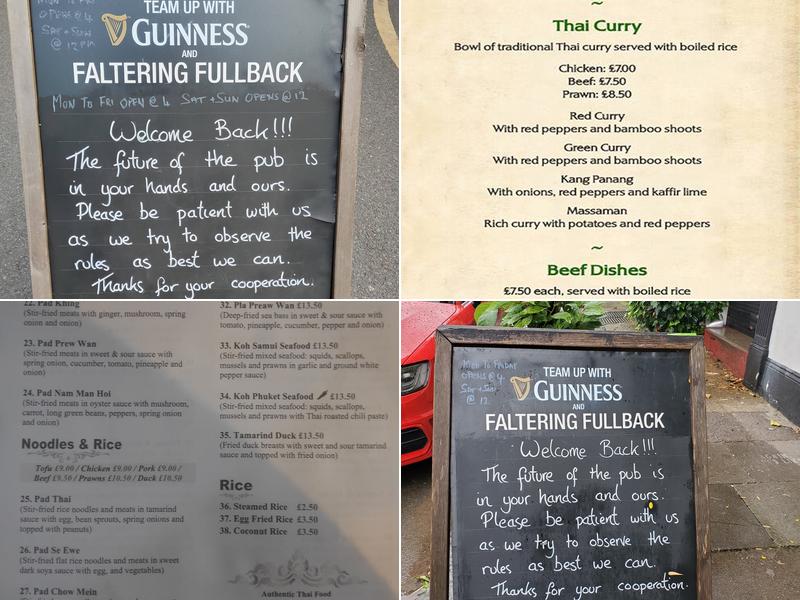 MON TO
OPENS @ 4
SAT + SUN
@ 12 PM
TEAM UP WITH
GUINNESS
AND
FALTERING FULLBACK
MON TO FRI OPEN @ 4 SAT + SUN OPENS @ 12
Welcome Back!!!
The future of the pub is
in your hands and ours.
Please be patient with us
as we try to observe the
rules as best we can.
Thanks for your cooperation.
~
Thai Curry
Bowl of traditional Thai curry served with boiled rice
Chicken: £7.00
Beef: £7.50
Prawn: £8.50
Red Curry
With red peppers and bamboo shoots
Green Curry
With red peppers and bamboo shoots
Kang Panang
With onions, red peppers and kaffir lime
Massaman
Rich curry with potatoes and red peppers
~
Beef Dishes
£7.50 each, served with boiled rice
22. Pad Khing
(Stir-fried meats with ginger, mushroom, spring
onion and onion)
23. Pad Prew Wan
(Stir-fried meats in sweet & sour sauce with
spring onion, cucumber, tomato, pineapple and
onion)
24. Pad Nam Man Hoi
(Stir-fried meats in oyster sauce with mushroom,
carrot, long green beans, peppers, spring onion
and onion)
Noodles & Rice
Tofu £9.00 / Chicken £9.00 / Pork £9.00 /
Beef £9.50 / Prawns £10.50 / Duck £10.50
25. Pad Thai
(Stir-fried rice noodles and meats in tamarind
sauce with egg, bean sprouts, spring onions and
topped with peanuts)
26. Pad Se Ewe
(Stir-fried flat rice noodles and meats in sweet
dark soya sauce with egg, and vegetables)
27. Pad Chow Mein
32. Pla Preaw Wan £13.50
(Deep-fried sea bass in sweet & sour sauce with
tomato, pineapple, cucumber, pepper and onion)
33. Koh Samui Seafood £13.50
(Stir-fried mixed seafood: squids, scallops,
mussels and prawns in garlic and ground white
pepper sauce)
34. Koh Phuket Seafood £13.50
(Stir-fried mixed seafood: squids, scallops,
mussels and prawns with Thai roasted chili paste)
35. Tamarind Duck £13.50
(Fried duck breasts with sweet and sour tamarind
sauce and topped with fried onion)
Rice
36. Steamed Rice £2.50
37. Egg Fried Rice £3.50
38. Coconut Rice £3.50
Authentic Thai Food
MON TO FRIDAY
OPENS @ 4
SAT + SUN
@ 12
TEAM UP WITH
GUINNESS
AND
FALTERING FULLBACK
Welcome Back!!!
The future of the pub is
in your hands and ours.
Please be patient with us
as we try to observe the
rules as best we can.
Thanks for your cooperation.